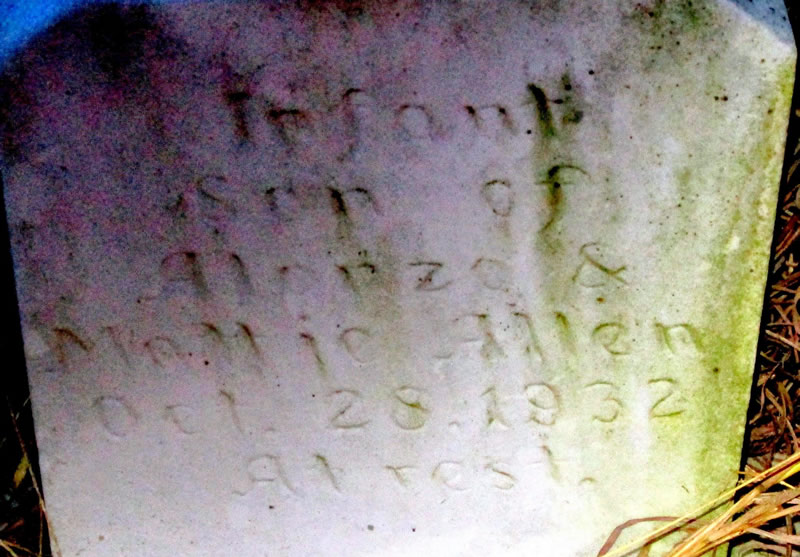 Infant
Son of
Alonzo &
Mattie Allen
Oct. 28. 1932
At rest.